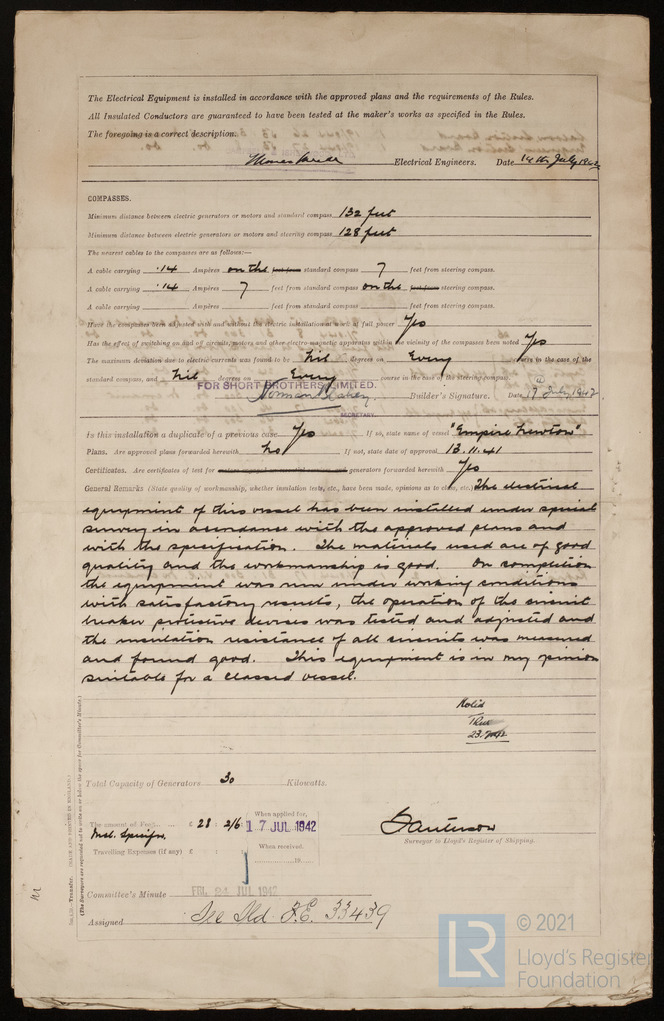 The Electrical Equipment is installed in accordance with the approved plans and the requirements of the Rules.
All Insulated Conductors are guaranteed to have been tested at the maker's works as specified in the Rules.
The foregoing is a correct description.
Electrical Engineers. Date 14th July 1942
COMPASSES.
Minimum distance between electric generators or motors and standard compass 132 feet
Minimum distance between electric generators or motors and steering compass 128 feet
The nearest cables to the compasses are as follows:—
A cable carrying .14 Ampères on the feet from standard compass 7 feet from steering compass.
A cable carrying .14 Ampères 7 feet from standard compass on the feet from steering compass.
A cable carrying Ampères feet from standard compass feet from steering compass.
Have the compasses been adjusted with and without the electric installation at work at full power Yes
Has the effect of switching on and off circuits, motors and other electro-magnetic apparatus within the vicinity of the compasses been noted Yes
The maximum deviation due to electric currents was found to be Nil degrees on Every course in the case of the
standard compass, and Nil degrees on Every course in the case of the steering compass.
FOR SHORT BROTHERS LIMITED.
Builder's Signature. Date 17 July 1942
SECRETARY.
Is this installation a duplicate of a previous case Yes If so, state name of vessel "Empire Newton"
Plans. Are approved plans forwarded herewith No If not, state date of approval 13.11.41
Certificates. Are certificates of test for generators forwarded herewith Yes
General Remarks (State quality of workmanship, whether insulation tests, etc., have been made, opinions as to class, etc.) The electrical
equipment of this vessel has been installed under special
survey in accordance with the approved plans and
with the specification. The materials used are of good
quality and the workmanship is good. On completion
the equipment was run under working conditions
with satisfactory results, the operation of the circuit
breaker protective devices was tested and adjusted and
the insulation resistance of all circuits was measured
and found good. This equipment is in my opinion
suitable for a classed vessel.
Noted
23.
Total Capacity of Generators 30 Kilowatts.
The amount of Fee £ 28 : 2/6 When applied for, 17 JUL 1942
Travelling Expenses (if any) £ : : When received, 19
Surveyor to Lloyd's Register of Shipping.
Committee's Minute FRI. 24 JUL 1942
Assigned See F.E. 33439
(The Surveyors are requested not to write on or below the space for Committee's Minute.)
© 2021
LR Lloyd's Register
Foundation